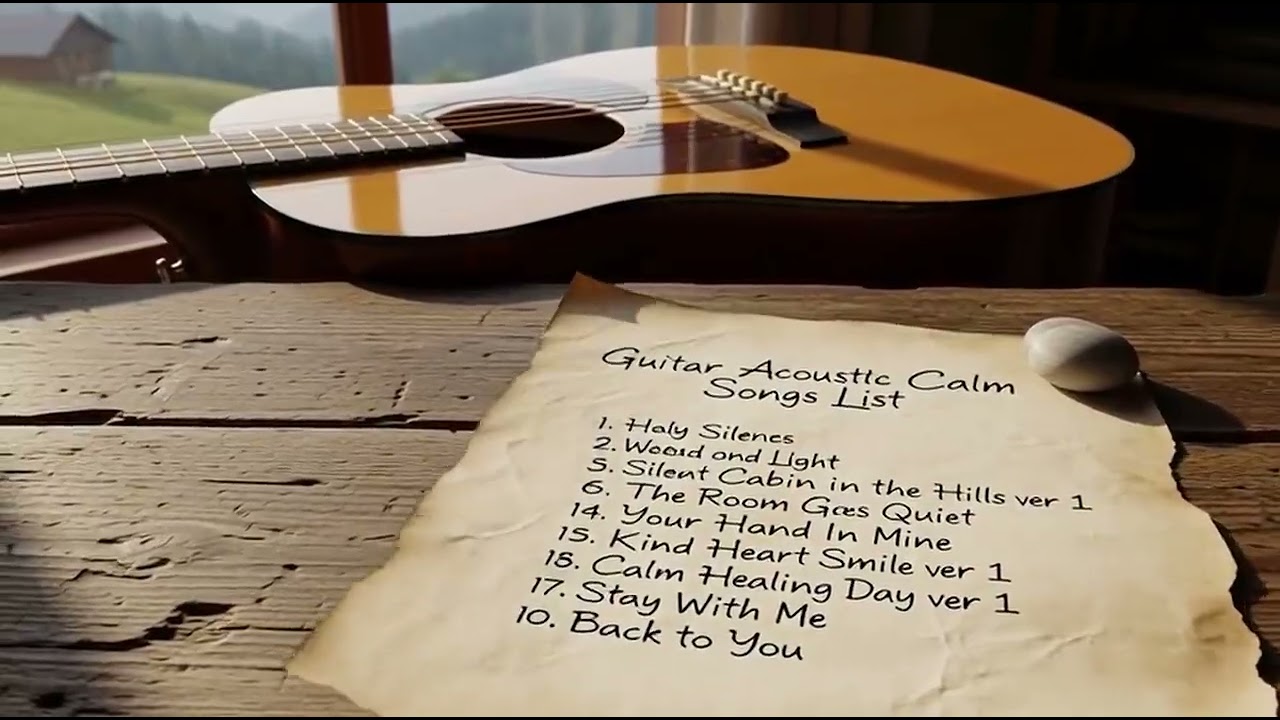 Guitar Acoustic Calm
Songs List
1. Holy Silencs
2. Wood and Light
5. Silent Cabin in the Hills ver 1
6. The Room Gœs Quiet
14. Your Hand In Mine
15. Kind Heart Smile ver 1
18. Calm Healing Day ver 1
17. Stay With Me
10. Back to You